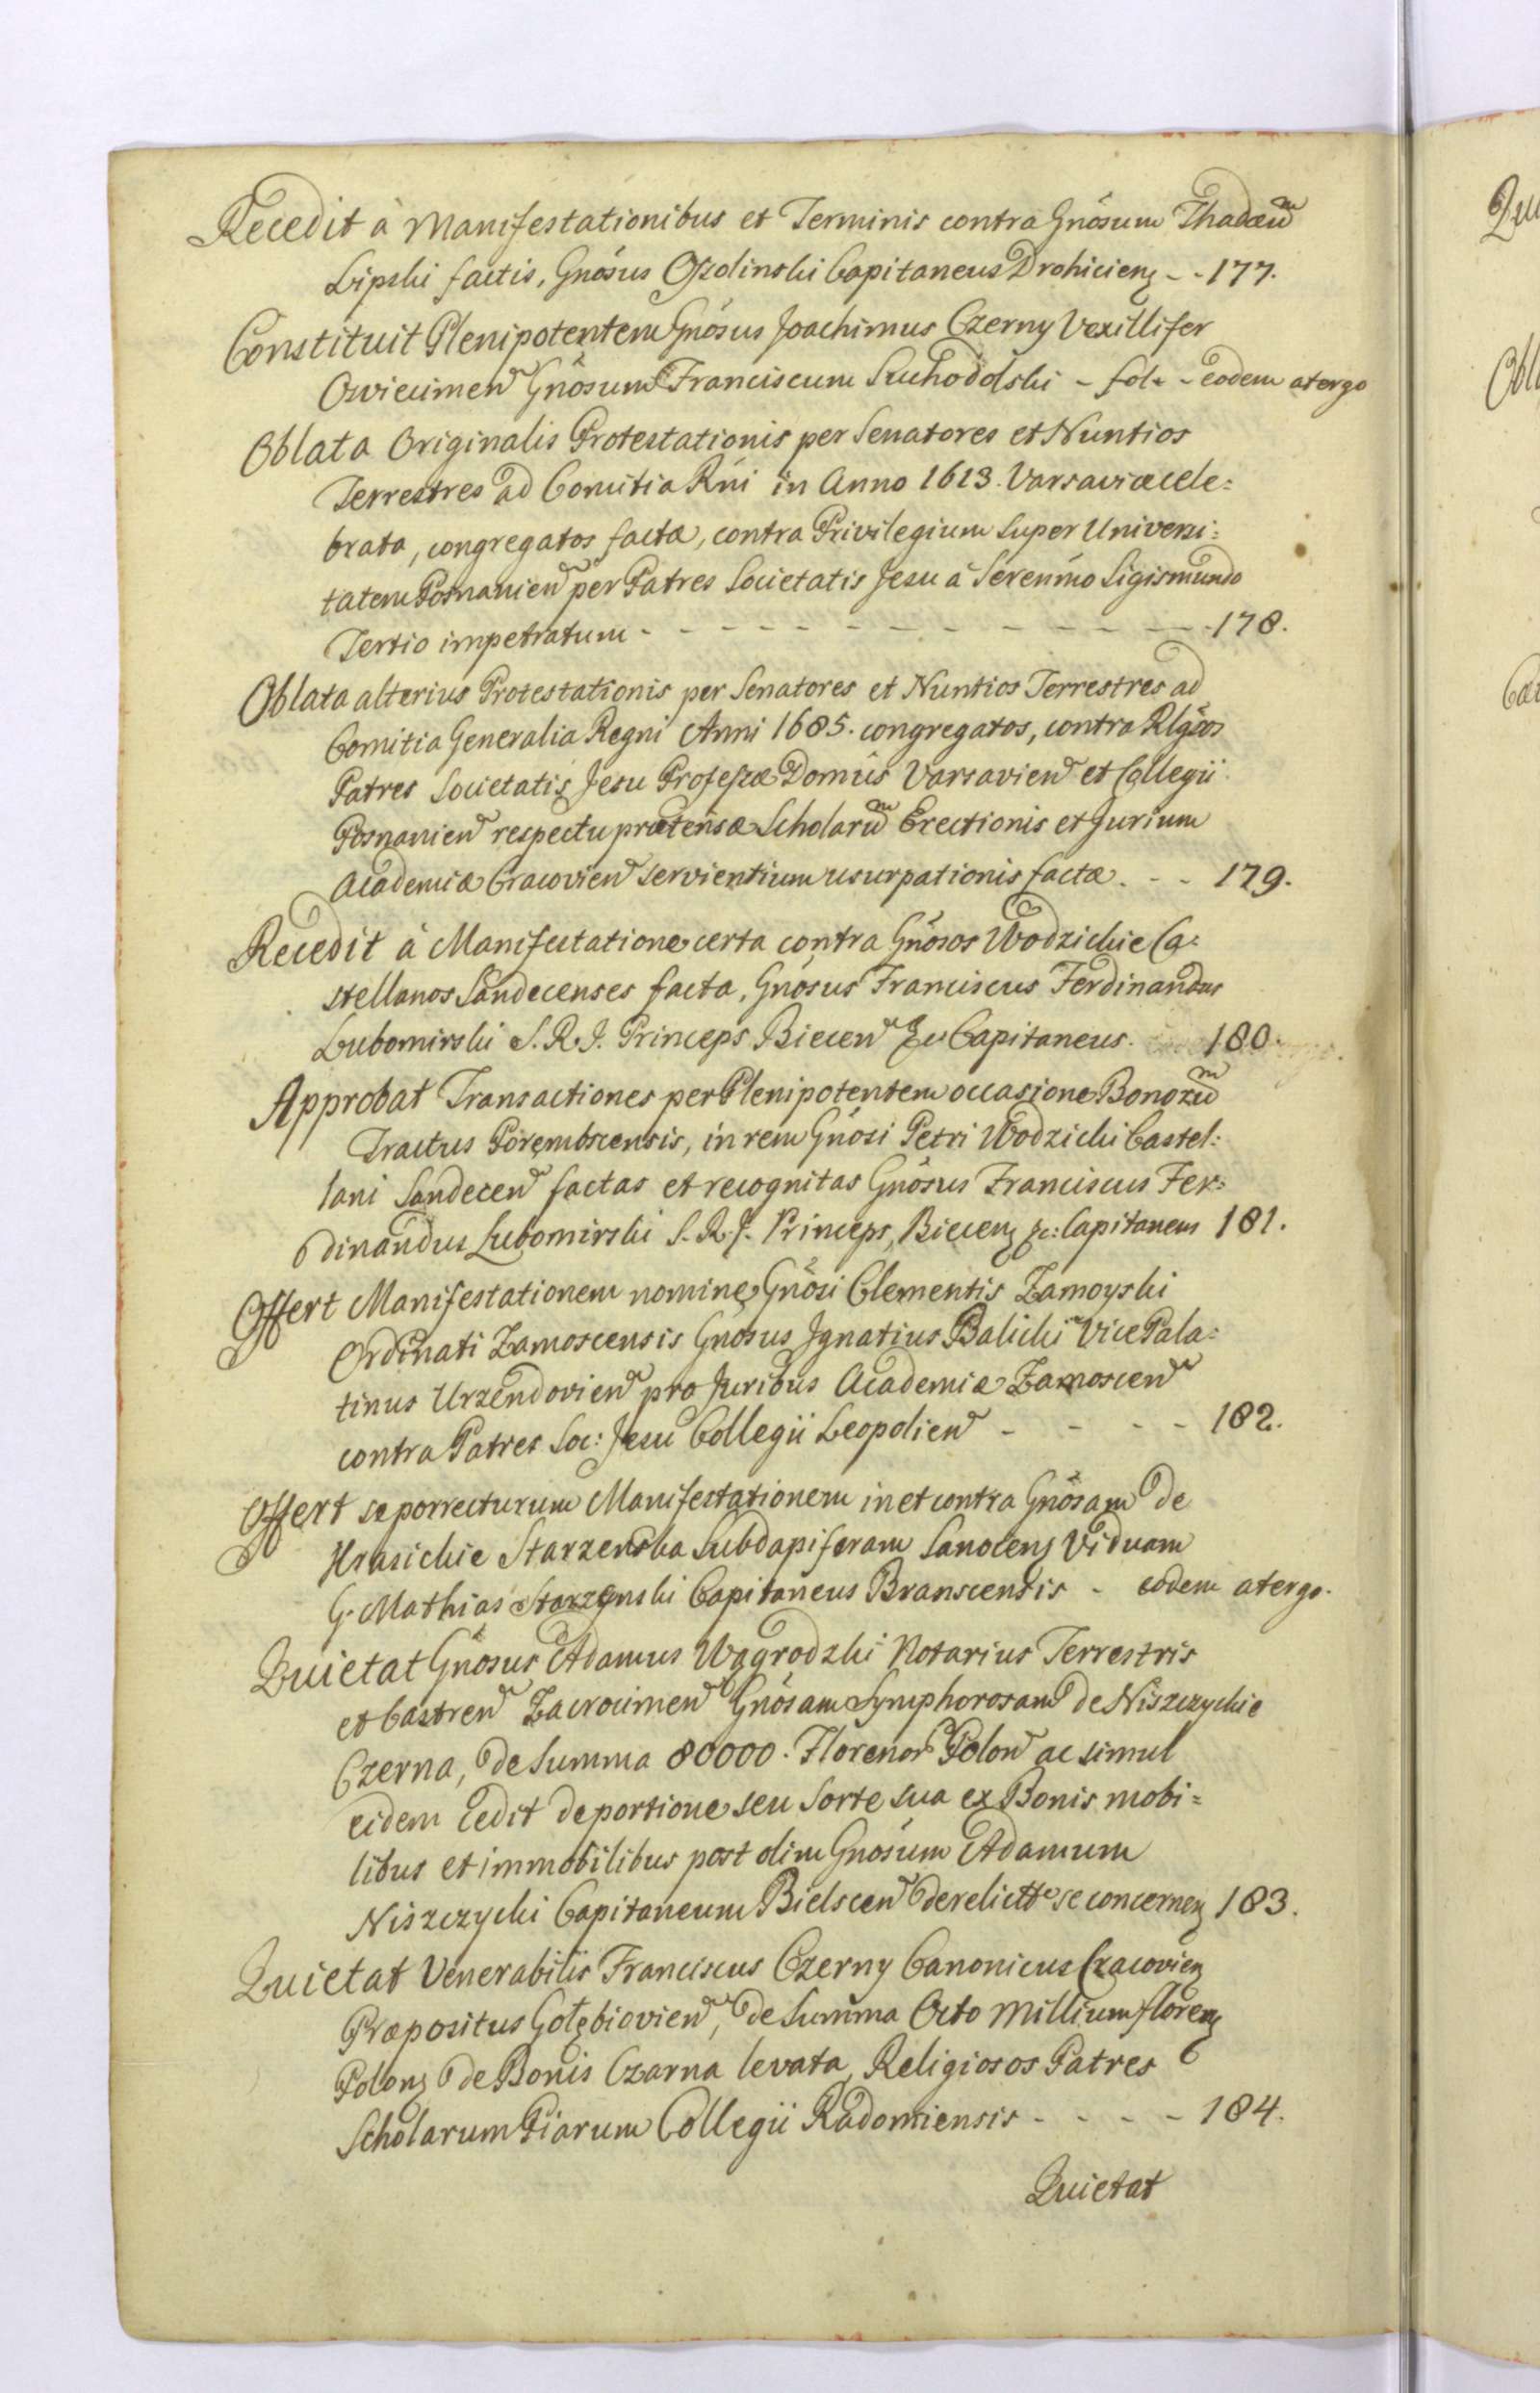 Recedit à Manifestationibus et Terminis contra Gnosum Thadæum
Lipski factis, Gnosus Ossolinski Capitaneus Drohicien - - 177.
Constituit Plenipotentem Gnosus Joachimus Czerny Vexillifer
Oswiecimen Gnosum Franciscum Suchodolski - fol. - eodem atergo
Oblata Originalis Protestationis per Senatores et Nuntios
Terrestres ad Comitia Rni in Anno 1613. Varsaviæ cele:
brata, congregatos factæ, contra Privilegium super Universi:
tatem Posnanien per Patres Societatis Jesu à Serenmo Sigismundo
Tertio impetratum - - - - - - - - - - - - 178.
Oblata alterius Protestationis per Senatores et Nuntios Terrestres ad
Comitia Generalia Regni Anni 1685. congregatos, contra Rlgsos
Patres Societatis Jesu Professæ Domûs Varsavien et Collegii
Posnanien respectu prætensæ Scholarum Erectionis et Jurium
Academiæ Cracovien servientium usurpationis factæ. - - 179.
Recedit à Manifestatione certa contra Gnosos Wodzickie Ca:
stellanos Sandecenses facta, Gnosus Franciscus Ferdinandus
Lubomirski S. R. J. Princeps Biecen &c Capitaneus. 180.
Approbat Transactiones per Plenipotentem occasione Bonorum
Tractus Porembscensis, in rem Gnosi Petri Wodzicki Castel:
lani Sandecen factas et recognitas Gnosus Franciscus Fer:
dinandus Lubomirski S. R. J. Princeps, Biecen &c: Capitaneus 181.
Offert Manifestationem nomine Gnosi Clementis Zamoyski
Ordinati Zamoscensis Gnosus Ignatius Balicki Vice Pala:
tinus Urzendovien pro Juribus Academiæ Zamoscen
contra Patres Soc: Jesu Collegii Leopolien - - - - 182.
Offert se porrecturum Manifestationem in et contra Gnosam de
Krasickie Starzenska Subdapiferam Sanocen Viduam
G. Mathias Starzenski Capitaneus Branscensis - eodem atergo.
Quietat Gnosus Adamus Wągrodzki Notarius Terrestris
et Castren Zacrocimen Gnosam Symphorosam de Niszczyckie
Czerna, de Summa 80000. Florenor Polon ac simul
eidem Cedit de portione seu Sorte sua ex Bonis mobi=
libus et immobilibus post olim Gnosum Adamum
Niszczycki Capitaneum Bielscen derelictis se concernen 183.
Quietat Venerabilis Franciscus Czerny Canonicus Cracovien
Præpositus Gołębiovien, de Summa Octo Millium floren
Polon de Bonis Czarna levata, Religiosos Patres
Scholarum Piarum Collegii Radomiensis - - - - 184.
Quietat